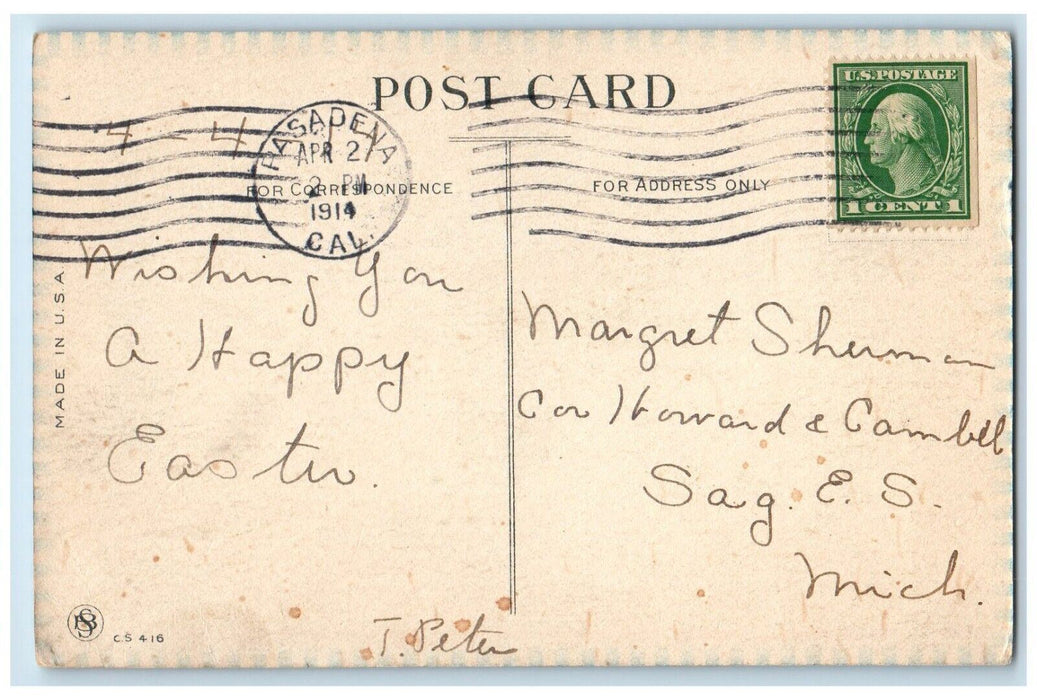 POST CARD
U.S. POSTAGE
1 CENT 1
PASADENA
APR 27
2 PM
1914
CAL.
FOR CORRESPONDENCE
FOR ADDRESS ONLY
Wishing You
A Happy
Easter.
Margret Sherman
Cor Howard & Cambell
Sag. E. S.
Mich.
T. Peter
MADE IN U.S.A.
C.S 416